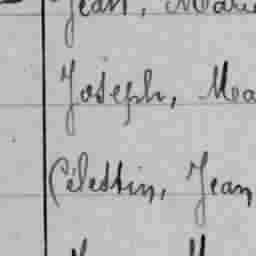 Jean, Marie
Joseph, Ma
Célestin, Jean